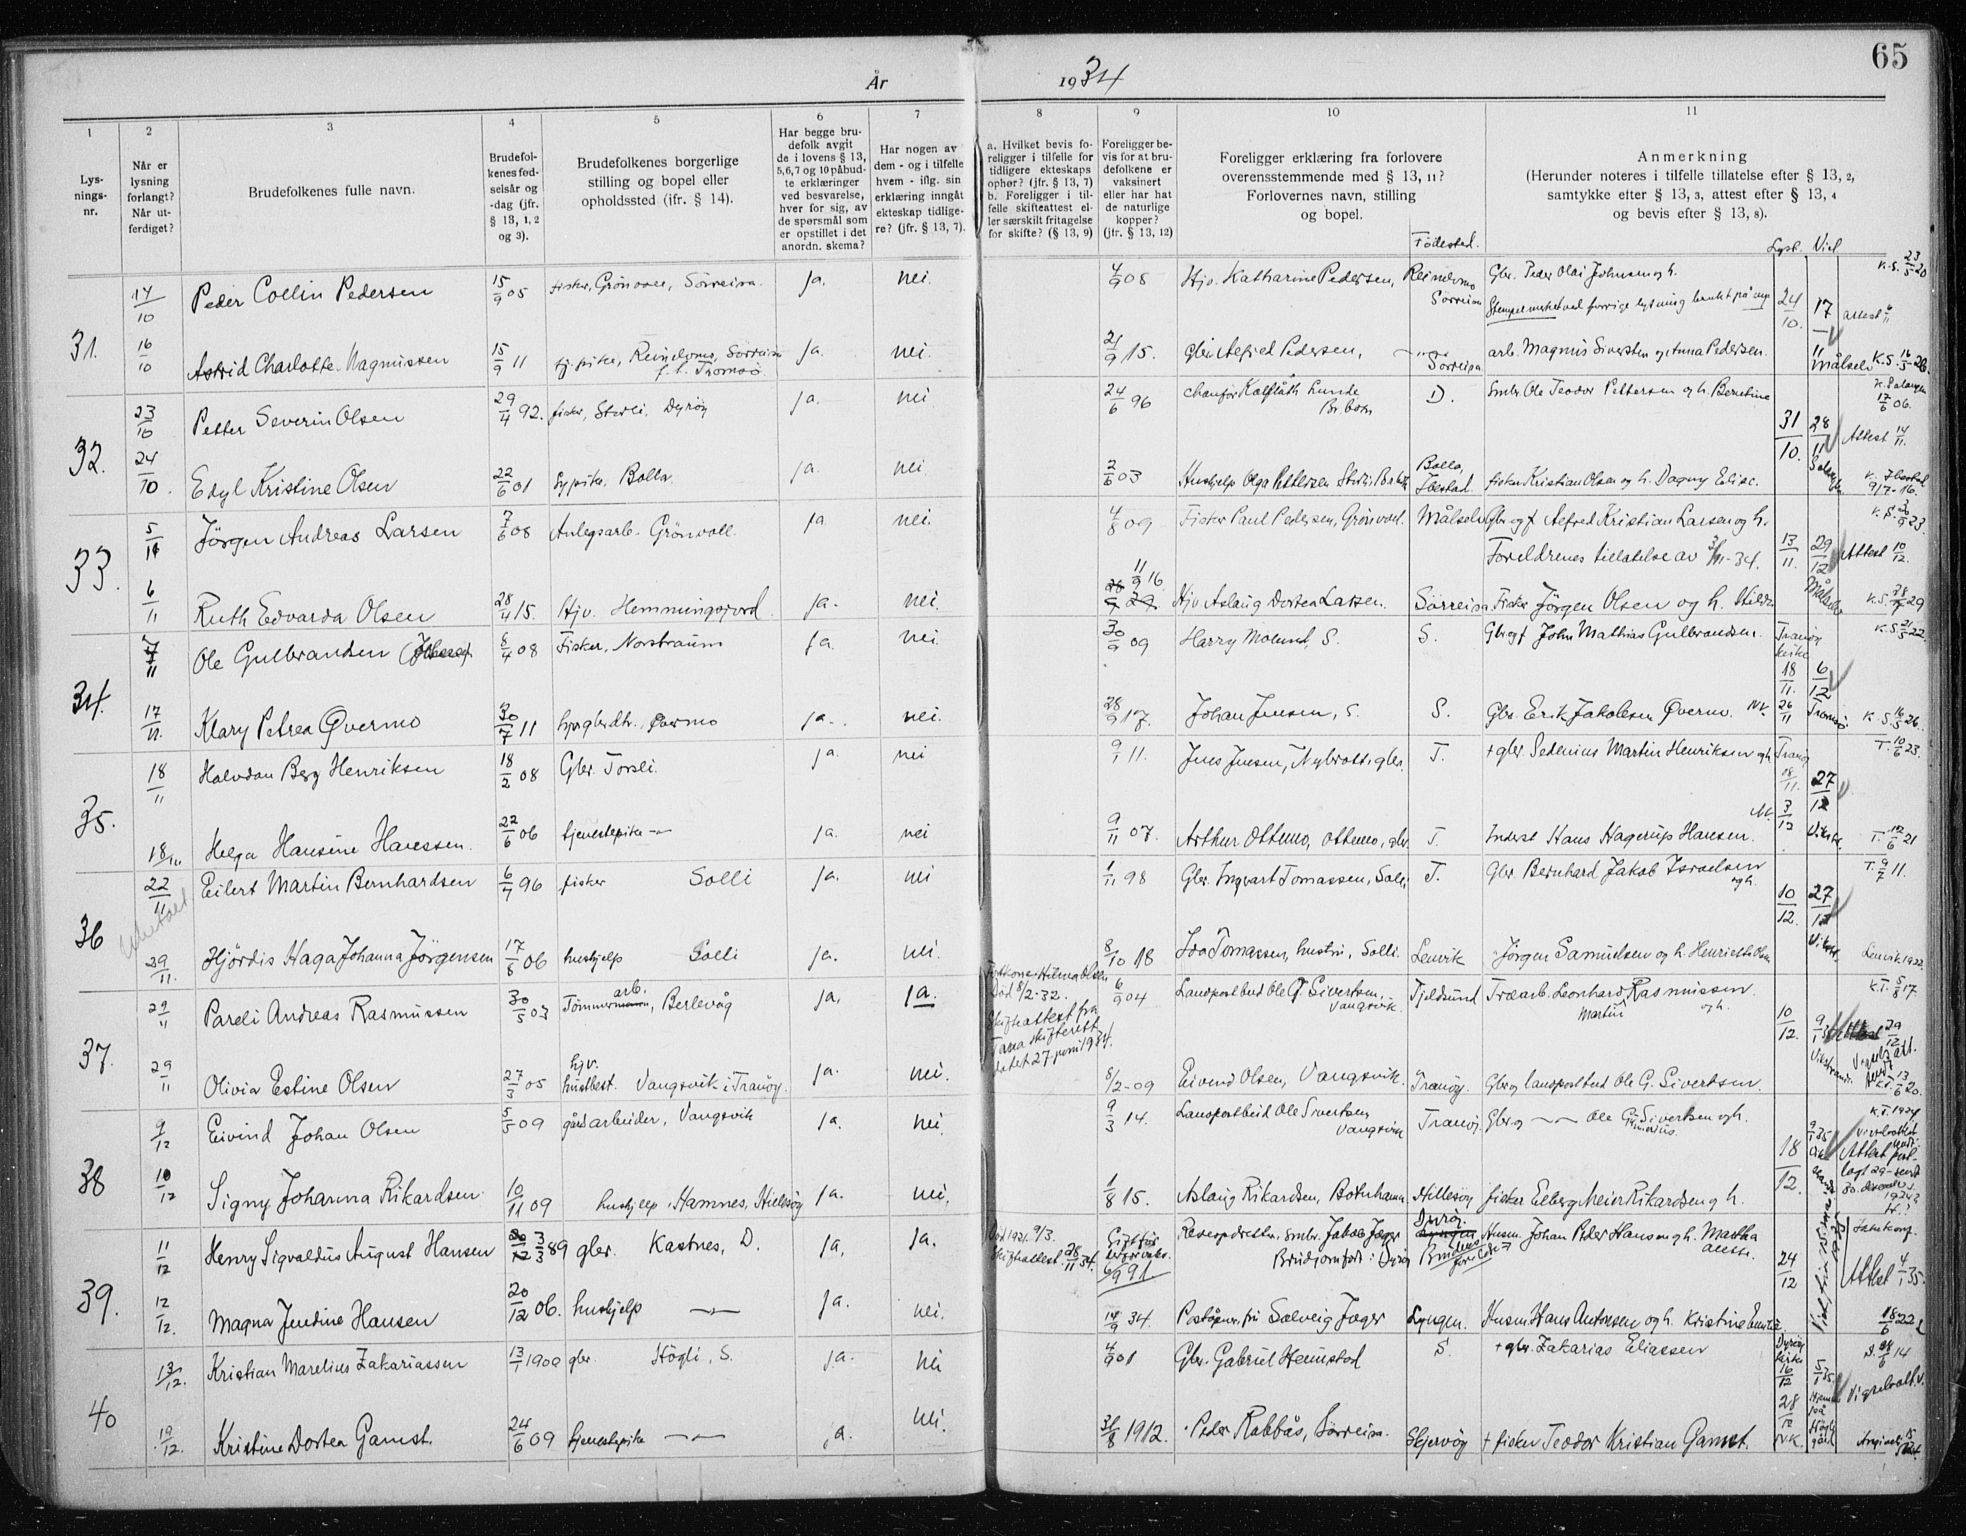 65
År 1934
1
2
3
4
5
6
7
8
9
10
11
Lys-
nings-
nr.
Når er
lysning
forlangt?
Når ut-
ferdiget?
Brudefolkenes fulle navn.
Brudefol-
kenes fød-
selsår og
-dag (jfr.
§ 13, 1, 2
og 3).
Brudefolkenes borgerlige
stilling og bopel eller
opholdssted (jfr. § 14).
Har begge bru-
defolk avgit
de i lovens § 13,
5,6,7 og 10 påbud-
te erklæringer
ved besvarelse,
hver for sig, av
de spørsmål som
er opstillet i det
anordn. skema?
Har nogen av
dem - og i tilfelle
hvem - iflg. sin
erklæring inngått
ekteskap tidlige-
re? (jfr. § 13, 7).
a. Hvilket bevis fo-
religger i tilfelle for
tidligere ekteskaps
ophør? (jfr. § 13, 7)
b. Foreligger i til-
felle skifteattest el-
ler særskilt fritagelse
for skifte? (§ 13, 9)
Foreligger be-
vis for at bru-
defolkene er
vaksinert
eller har hat
de naturlige
kopper?
(jfr. § 13, 12)
Foreligger erklæring fra forlovere
overensstemmende med § 13, 11?
Forlovernes navn, stilling
og bopel.
Fødested.
Anmerkning
(Herunder noteres i tilfelle tillatelse efter § 13, 2,
samtykke efter § 13, 3, attest efter § 13, 4
og bevis efter § 13, 8).
Lyst. Viel
31.
14/10 Peder Collin Pedersen 15/9 05 fisker, Grönvoll, Sörreisa. ja. nei. 4/9 08 Hjv. Katharine Pedersen, Reindermo Sörreisa Gbr. Peder Olai Johnsen og h. K.S. 23/5 20
Stempelmerket ved forrige lysning brukt på ny 24/10. 17/11 attest
16/10 Astrid Charlotte Magnussen 15/9 11 tj.pike, Reindermo, Sörreisa f. t. Tromsö ja. nei. 21/9 15. gbr. Alfred Pedersen, Sörreisa arb. Magnus Sivertsen og Anna Pedersen. Målselv K.S. 16/5-26.
32.
23/10 Petter Severin Olsen 29/4 92. fisker, Sterli, Dyröy ja. nei. 24/6 96 D. Smbr Ole Teodor Pettersen og h. Berntine K. Salangen 17/6 06.
31/10. 28/11 Attest 14/11.
24/10. Edyl Kristine Olsen 22/6 01 sypike. Bolla. ja nei. 2/6 03 Hushjelp Olga Pettersen Bolla, Ibestad. fisker Kristian Olsen og h. Dagny Elise. Salangen K. Ibestad 9/7-16.
33.
5/11 Jörgen Andreas Larsen 7/6 08 Anlegsarb. Grönvoll. ja nei. 4/8 09 Fisker Paul Pedersen, Grönvoll. Målselv Gbr og f Alfred Kristian Larsen og h.
Foreldrenes tillatelse av 3/11-34. 13/11. 29/12 Attest 10/12.
6/11 Ruth Edvarda Olsen 28/4 15. Hjv. Hemmingsjord. ja. nei. 11/9 16 Hjv Aslaug Dortea Larsen. Sörreisa. Fisker Jörgen Olsen og h. Hilda Målselv K.S. 28/7 29
34.
7/11 Ole Gulbrandsen 8/4 08 Fisker, Norstraum ja. nei 30/9 09 Harry Molund, S. S. Gbr og f John Mathias Gulbrandsen. Tranöy kirke K.S. 21/5 22
18/11. 6/12
17/11. Klary Petrea Øvermo 30/7 11 hjv gbrdtr. Øvermo ja. nei. 28/9 17. Johan Jensen, S. S. Gbr. Erik Jakobsen Øvermo. NK. 26/11 Tromsö K.S. 16/5 26.
35.
18/11 Halvdan Berg Henriksen 18/2 08 Gbr. Torsli. ja. nei 9/9 11. Jens Jensen, Nybrott, gbr. T. + gbr. Sedenius Martin Henriksen og h Tranöy T. 10/6 23.
18/11. 27/12
18/11 Helga Hansine Hanssen. 22/6 06 tjenestepike ja. nei 9/11 07. Arthur Ottemo, Ottemo, gbr. T. Inderst Hans Hagerup Hansen. NK. 3/12 T. 12/6 21
36
22/11 Eilert Martin Bernhardsen 6/7 96 fisker Solli ja. nei 1/11 98 Gbr. Ingvart Tomassen, Solli T. Gbr. Bernhard Jakob Israelsen og h. T. 9/7 11.
10/12. 27/12
29/11. Hjördis Haga Johanna Jörgensen 17/8 06 hushjelp Solli ja. nei. 8/10 18 Ida Tomassen, hustru, Solli. Lenvik Jörgen Samuelsen og h. Lenvik 1922.
37.
29/11 Pareli Andreas Rasmussen 30/5 03 Tömmerarb., Berlevåg ja, ja. Hilma Olsen Död 8/2-32. Skifteattest fra Tana skifterett datet 27 juni 1934. 6/9 04 Landpostbud Ole G. Sivertsen, Vangsvik. Tjeldsund Træarb. Leonhard Martin Rasmussen og h. K.T. 5/8 17.
10/12. 9/1
29/11 Olivia Estine Olsen 27/3 05 hjv. hustbest. Vangsvik i Tranöy. ja. nei. 8/2-09 Eivind Olsen, Vangsvik. Tranöy. Gbr og landpostbud Ole G. Sivertsen. K.T. 13/6 20.
38
9/12 Eivind Johan Olsen 5/5 09 gårdarbeider, Vangsvik ja. nei. 9/3 14. Landpostbud Ole Sivertsen Vangsvik Tranöy. Gbr og Ole G. Sivertsen og h. K.T. 1924
18/12.
10/12 Signy Johanna Rikardsen. 10/11 09 hushjelp, Hamnes, Hillesöy ja. nei. 1/8 15. Aslaug Rikardsen, Botnhamn. Hillesöy fisker Elberg Meier Rikardsen og h.
39.
11/12 Henry Sigvaldus August Hansen 3/3 89 gbr. Kastnes, D. ja, ja. Död 1931. 9/3. Skifteattest 28/11 34. 6/9 91 Smbr. Jakob Jæger Brudjomfru: Dyröy Husm. Johan Peder Hansen og h. Martha
24/12 Attest 4/1 35.
12/12. Magna Jentine Hansen 20/12 06. hushjelp ja. nei. 14/9 34. Poståpner, fru Solveig Jæger Lyngen. Husm. Hans Antonsen og h. Kristine 18/6 22
40
13/12. Kristian Marelius Zakariassen 13/1 1900 gbr. Högli, S. ja. nei 4/9 01 Gbr. Gabriel Hemstad S. + gbr. Zakarias Eliassen Dyröy kirke 16/12 5/1 35. S. 14
28/12
19/12. Kristine Dortea Gamst. 24/6 09 tjenestepike ja. nei. 31/8 1912. Peder Rabbås, Sörreisa. Skjervöy + fisker Teodor Kristian Gamst. NK.